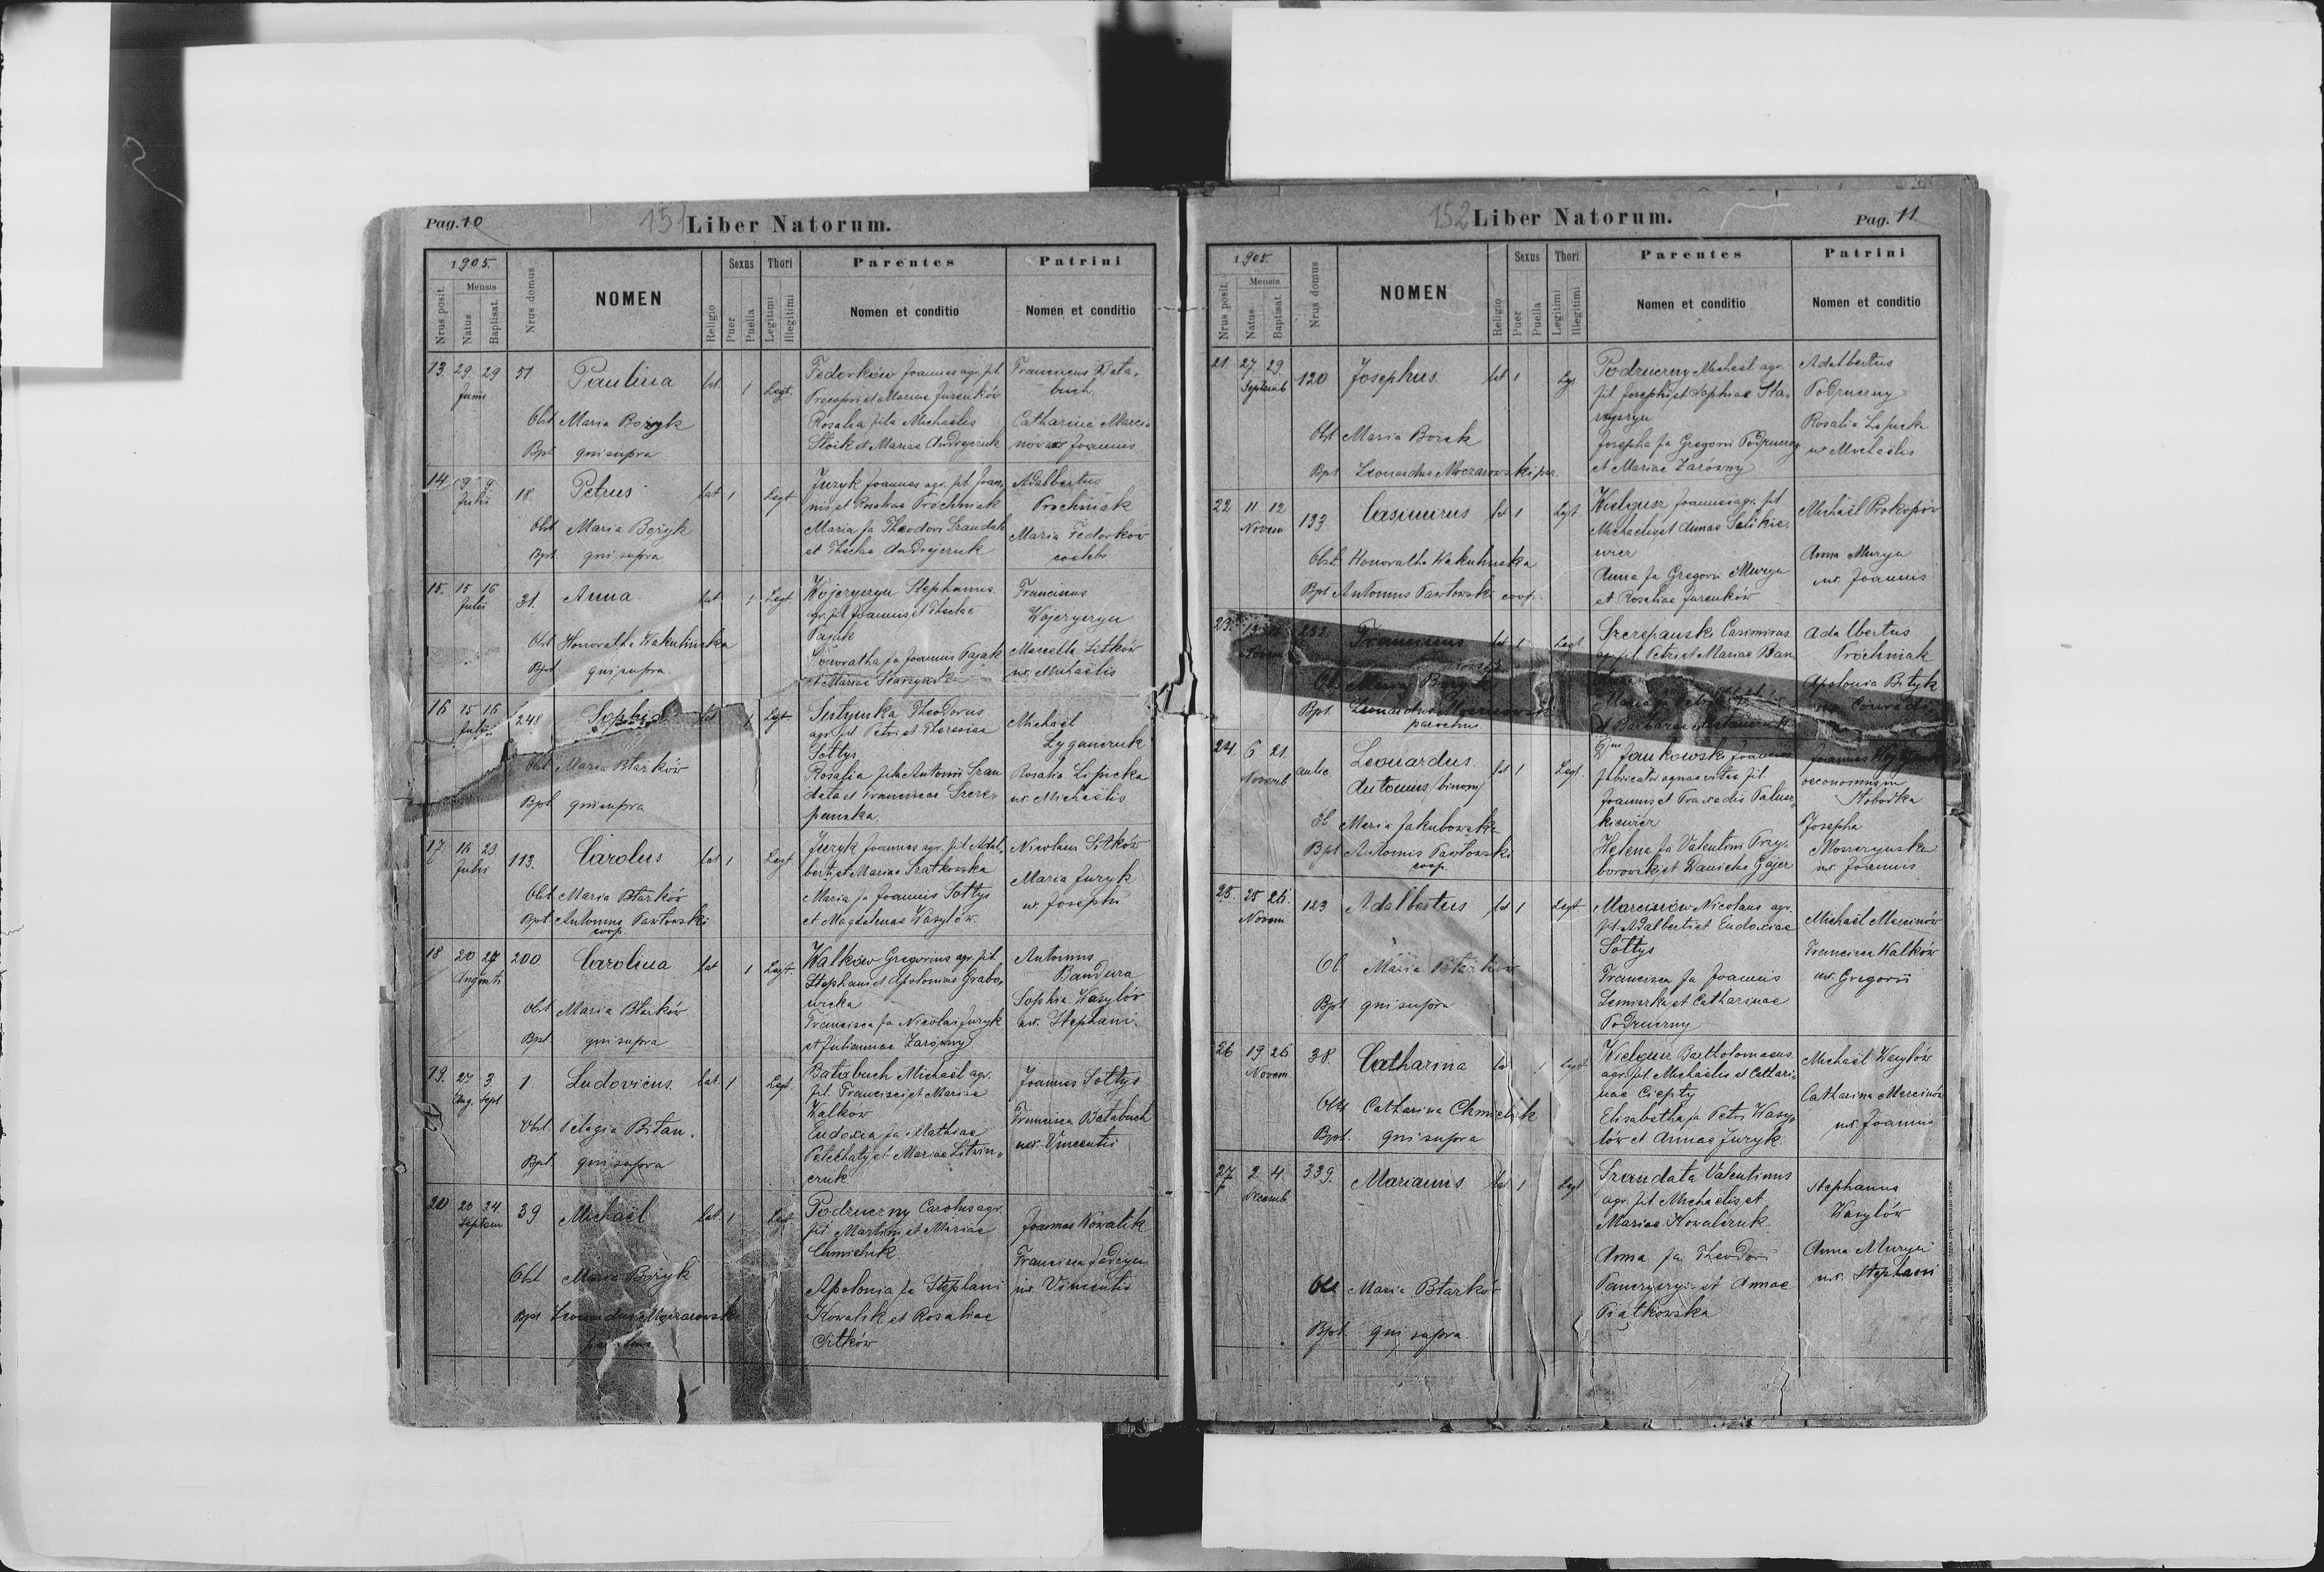 Pag. 10
151
Liber Natorum.
1905.
Nrus posit.
Mensis
Natus
Baptisat.
Nrus domus
NOMEN
Religio
Sexus
Puer
Puella
Thori
Legitimi
Illegitimi
Parentes
Nomen et conditio
Patrini
Nomen et conditio
13. 29. 29 51 Paulina lat. 1 Legt.
Junii
Obst Maria Bożyk
Bpt qui supra
Fedorków Joannes agr. fil.
Procopii et Mariae Jurenków
Rosalia filia Michaëlis
Słoik et Mariae Andrejczuk
Franciscus Bata-
buch
Catharina Marci-
nów ux Joannis
14. 9 9 18. Petrus lat 1 Legt
Julii
Obst Maria Bożyk
Bpt. qui supra
Juzyk Joannes agr. fil. Joan-
nis et Rosaliae Próchniak
Maria fa Theodori Szandała
et Theclae Andrejczuk
Adalbertus
Próchniak
Maria Fedorków
coelebs
15. 15 16 31. Anna lat 1 Legt
Julii
Obst Honoratha Wakulińska
Bpt qui supra
Wojczyszyn Stephanus
agr. fil Joannis et Theclae
Pająk
Honoratha fa Joannis Pająk
et Mariae
Franciscus
Wojczyszyn
Marcella Sitków
ux. Michaëlis
16 15 16 248 Sophia lat 1 Legt
Julii
Obst Maria Błarków
Bpt qui supra
Theodorus
agr. fil Petri et Theresiae
Sołtys
Rosalia filia Antonii Szan
data et Franciscae Szcze-
pańska.
Michaël
Cyganczuk
Rosalia Lipicka
ux. Michaëlis
17. 16 23 113. Carolus lat 1 Legt.
Julii
Obst Maria Błarków
Bpt Antonius Pawłowski
coop.
Juzyk Joannes agr. fil Adal-
berti et Mariae Szatkowska
Maria fa Joannis Sołtys
et Magdalenae Wasylów.
Nicolaus Sitków
Maria Juzyk
ux. Josephi
18 20 27 200. Carolina lat 1 Legt.
Augusti
Obst Maria Błarków
Bpt. qui supra
Walków Gregorius agr. fil.
Stephani et Apoloniae Grabo-
wicka
Francisca fa Nicolai Juzyk
et Juliannae Zarówny
Antonius
Bandura
Sophia Wasylów
ux. Stephani.
19. 27 3. 1 Ludovicus lat. 1 Legt.
Aug. Sept
Obst Pelagia Bitan.
Bpt. qui supra
Batabuch Michaël agr.
fil. Francisci et Mariae
Walków
Eudoxia fa Mathiae
Pelechaty et Mariae Litwin-
czuk
Joannes Sołtys
Francisca Batabuch
ux. Vincentii
20 20 24 39 Michaël lat. 1 Legt
Septem
Obst Maria Bożyk
Bpt Leonardus Moczarowski
parochus
Podzuczny Carolus agr.
fil Martini et Mariae
Chmieluk
Apolonia fa Stephani
Kowalik et Rosaliae
Sitków
Joannes Kowalik
Francisca
ux. Vincentii
152
Liber Natorum.
Pag. 11
1905.
Nrus posit.
Mensis
Natus
Baptisat.
Nrus domus
NOMEN
Religio
Sexus
Puer
Puella
Thori
Legitimi
Illegitimi
Parentes
Nomen et conditio
Patrini
Nomen et conditio
21 27. 29. 120 Josephus lat 1 Legt.
Septemb
Obst Maria Bożek
Bpt. Leonardus Moczarowski par.
Podzuczny Michael agr.
fil Josephi et Sophiae Sta-
Josepha fa Gregorii Podzuczny
et Mariae Zarówny
Adalbertus
Podzuczny
Rosalia Lipicka
ux Michaëlis
22 11 12 133 Casimirus lat 1 Legt
Novem
Obst Honoratha Wakulinska
Bpt Antonius Pawłowski coop.
Wielgusz Joannes agr. fil
Michaëlis et Annae Salikie-
wicz
Anna fa Gregorii Muryn
et Rosaliae Jurenków
Michaël Prokopów
Anna Muryn
ux. Joannis
23. 13 232 Franciscus lat 1 Legt
Novem
Ob Maria
Bpt. Leonardus Moczarowski
parochus
Szczepanski Casimirus
agr. fil Petri et Mariae Ban
Maria fa Petri
et Barbarae
Adalbertus
Próchniak
Apolonia Bityk
ux. Conradi
24 6 21 antic. Leonardus lat 1 Legt.
Novemb
Antonius /binom/
Ob. Maria Jakubowska
Bpt Antonius Pawłowski
coop.
Jankowski Joannes
fabricator aquae vitae fil.
Joannis et Praxedis Palusz-
kiewicz
Helena fa Valentini Przy-
borowski et Gajer
Joannes
oeconomus in
Słobodka
Josepha
Moszczyńska
ux. Joannis
25. 25 26. 123 Adalbertus lat 1 Legt
Novem
Ob Maria Błarków
Bpt qui supra
Marcinów Nicolaus agr.
fil. Adalberti et Eudoxiae
Sołtys
Francisca fa Joannis
Lemiszka et Catharinae
Podzuczny
Michaël Marcinów
Francisca Walków
ux. Gregorii
26 19 26 38. Catharina lat 1 Legt.
Novem
Obst Catharina Chmieluk
Bpt. qui supra
Wielgusz Bartholomaeus
agr. fil Michaëlis et Cathari-
nae Ciepły
Elisabetha fa Petri Wasy-
lów et Annae Juzyk
Michaël Wasylów
Catharina Marcinów
ux. Joannis
27 2 4 339. Marianus lat 1 Legt
Decemb
Obst Maria Błarków
Bpt. qui supra
Szandała Valentinus
agr. fil Michaëlis et
Mariae Kowalczuk
Anna fa Theodori
Panczyszyn et Annae
Piątkowska
Stephanus
Wasylów
Anna Muryn
ux. Stephani